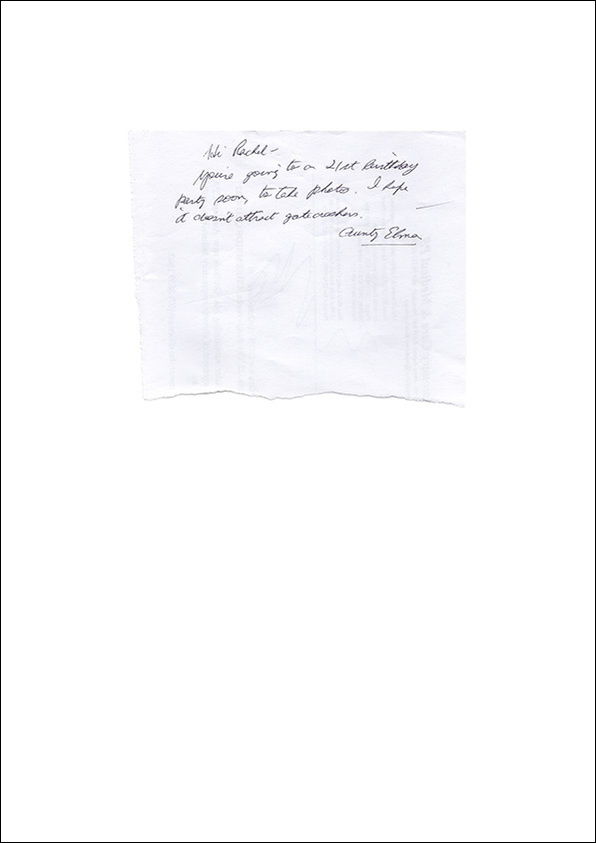 Hi Rachel -
You're going to a 21st birthday
party soon, to take photos. I hope
it doesn't attract gatecrashers.
Aunty Elma